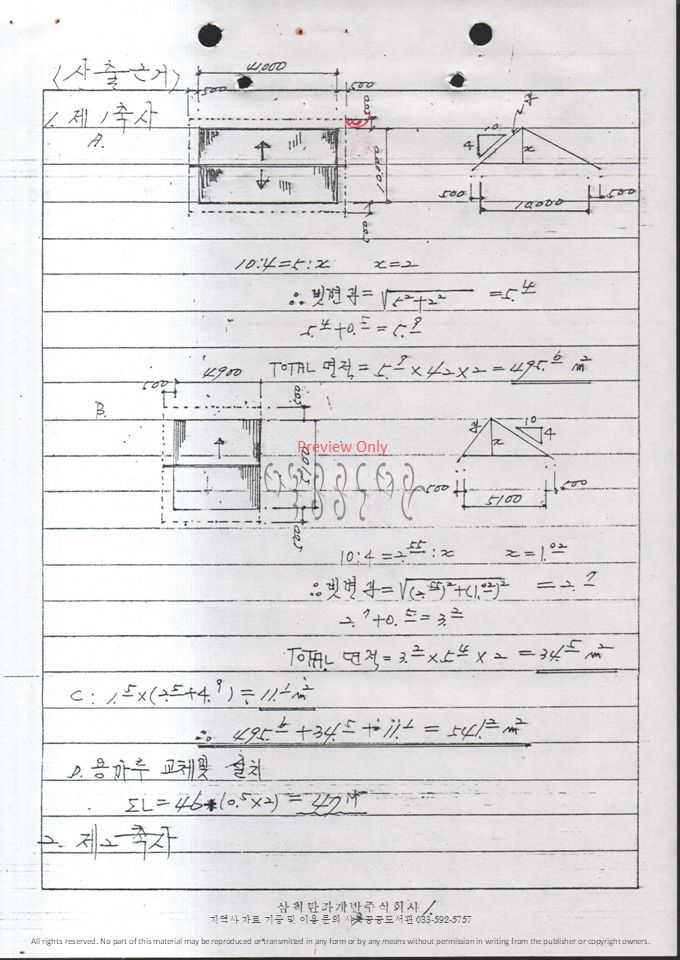 <산출근거>
41000
500
500
1. 제1축사
A.
500
10
4
x
10,000
500
500
500
10,000
10:4=5:x x=2
∴ 빗변장=√5²+2² =5.4
5.4+0.5=5.9
TOTAL 면적=5.9×42×2=495.6 m²
4900
500
500
B.
10
4
x
Preview Only
500
5100
500
500
10:4=2.55:x x=1.02
∴빗변장=√(2.55)²+(1.02)² =2.7
2.7+0.5=3.2
TOTAL 면적=3.2×5.4×2=34.5 m²
C: 1.5×(2.5+4.9)≒11.1 m²
∴ 495.6+34.5+11.1=541.2 m²
D. 용마루 교체및 설치
ΣL=46+(0.5×2)=47M
2. 제2축사
삼척탄좌개발주식회사 1.
지역사 자료 기증 및 이용 문의 사북공공도서관 033-592-5757
All rights reserved. No part of this material may be reproduced or transmitted in any form or by any means without permission in writing from the publisher or copyright owners.